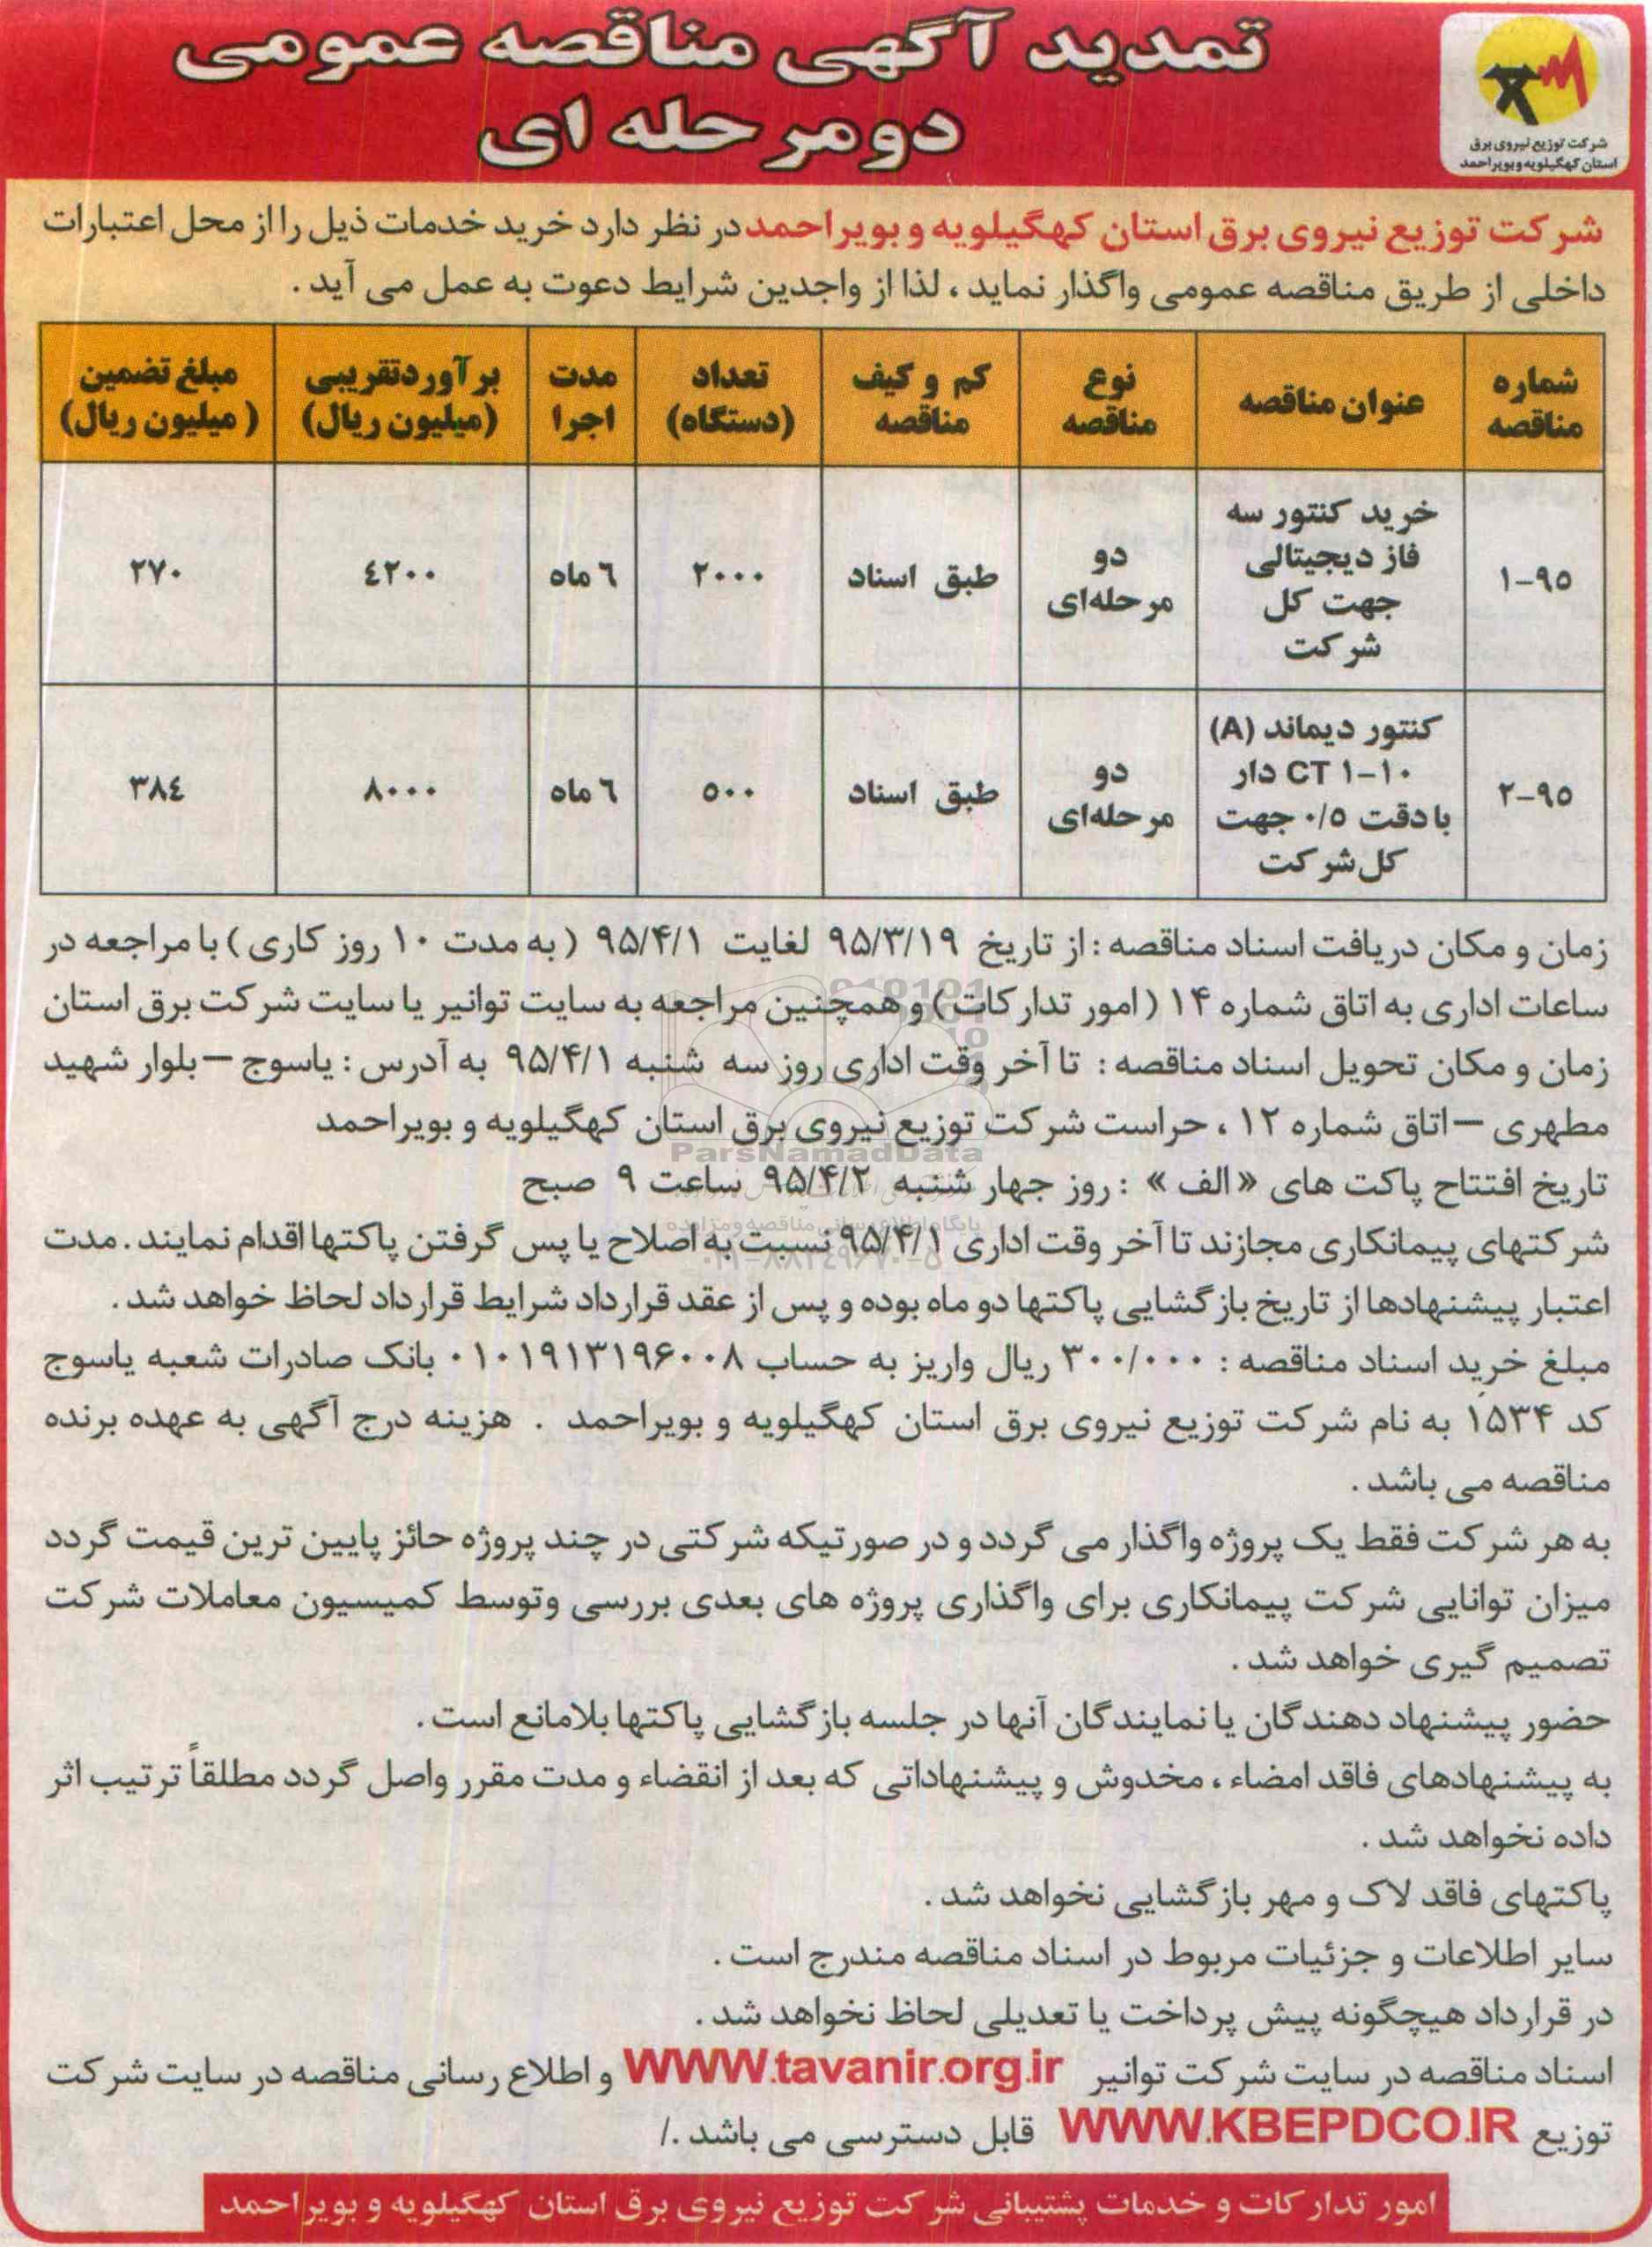 تمدید آگهی مناقصه عمومی
دو مرحله ای
شرکت توزیع نیروی برق
استان کهگیلویه و بویراحمد
شرکت توزیع نیروی برق استان کهگیلویه و بویراحمد در نظر دارد خرید خدمات ذیل را از محل اعتبارات
داخلی از طریق مناقصه عمومی واگذار نماید ، لذا از واجدین شرایط دعوت به عمل می آید .
شماره مناقصه | عنوان مناقصه | نوع مناقصه | کم و کیف مناقصه | تعداد (دستگاه) | مدت اجرا | برآورد تقریبی (میلیون ریال) | مبلغ تضمین (میلیون ریال)
۱-۹۵ | خرید کنتور سه فاز دیجیتالی جهت کل شرکت | دو مرحله‌ای | طبق اسناد | ۲۰۰۰ | ۶ ماه | ۴۲۰۰ | ۲۷۰
۲-۹۵ | کنتور دیماند (A) ۱-۱۰ CT دار با دقت ۰/۵ جهت کل شرکت | دو مرحله‌ای | طبق اسناد | ۵۰۰ | ۶ ماه | ۸۰۰۰ | ۳۸۴
زمان و مکان دریافت اسناد مناقصه : از تاریخ ۹۵/۳/۱۹ لغایت ۹۵/۴/۱ ( به مدت ۱۰ روز کاری ) با مراجعه در
ساعات اداری به اتاق شماره ۱۴ ( امور تدارکات ) و همچنین مراجعه به سایت توانیر یا سایت شرکت برق استان
زمان و مکان تحویل اسناد مناقصه : تا آخر وقت اداری روز سه شنبه ۹۵/۴/۱ به آدرس : یاسوج – بلوار شهید
مطهری – اتاق شماره ۱۲ ، حراست شرکت توزیع نیروی برق استان کهگیلویه و بویراحمد
تاریخ افتتاح پاکت های « الف » : روز چهار شنبه ۹۵/۴/۲ ساعت ۹ صبح
شرکتهای پیمانکاری مجازند تا آخر وقت اداری ۹۵/۴/۱ نسبت به اصلاح یا پس گرفتن پاکتها اقدام نمایند . مدت
اعتبار پیشنهادها از تاریخ بازگشایی پاکتها دو ماه بوده و پس از عقد قرارداد شرایط قرارداد لحاظ خواهد شد .
مبلغ خرید اسناد مناقصه : ۳۰۰/۰۰۰ ریال واریز به حساب ۰۱۰۱۹۱۳۱۹۶۰۰۸ بانک صادرات شعبه یاسوج
کد ۱۵۳۴ به نام شرکت توزیع نیروی برق استان کهگیلویه و بویراحمد . هزینه درج آگهی به عهده برنده
مناقصه می باشد .
به هر شرکت فقط یک پروژه واگذار می گردد و در صورتیکه شرکتی در چند پروژه حائز پایین ترین قیمت گردد
میزان توانایی شرکت پیمانکاری برای واگذاری پروژه های بعدی بررسی وتوسط کمیسیون معاملات شرکت
تصمیم گیری خواهد شد .
حضور پیشنهاد دهندگان یا نمایندگان آنها در جلسه بازگشایی پاکتها بلامانع است .
به پیشنهادهای فاقد امضاء ، مخدوش و پیشنهاداتی که بعد از انقضاء و مدت مقرر واصل گردد مطلقاً ترتیب اثر
داده نخواهد شد .
پاکتهای فاقد لاک و مهر بازگشایی نخواهد شد .
سایر اطلاعات و جزئیات مربوط در اسناد مناقصه مندرج است .
در قرارداد هیچگونه پیش پرداخت یا تعدیلی لحاظ نخواهد شد .
اسناد مناقصه در سایت شرکت توانیر WWW.tavanir.org.ir و اطلاع رسانی مناقصه در سایت شرکت
توزیع WWW.KBEPDCO.IR قابل دسترسی می باشد ./
امور تدارکات و خدمات پشتیبانی شرکت توزیع نیروی برق استان کهگیلویه و بویراحمد
ParsNamadData
پایگاه اطلاع رسانی مناقصه و مزایده
۰۲۱-۸۸۳۴۹۶۷۰-۵